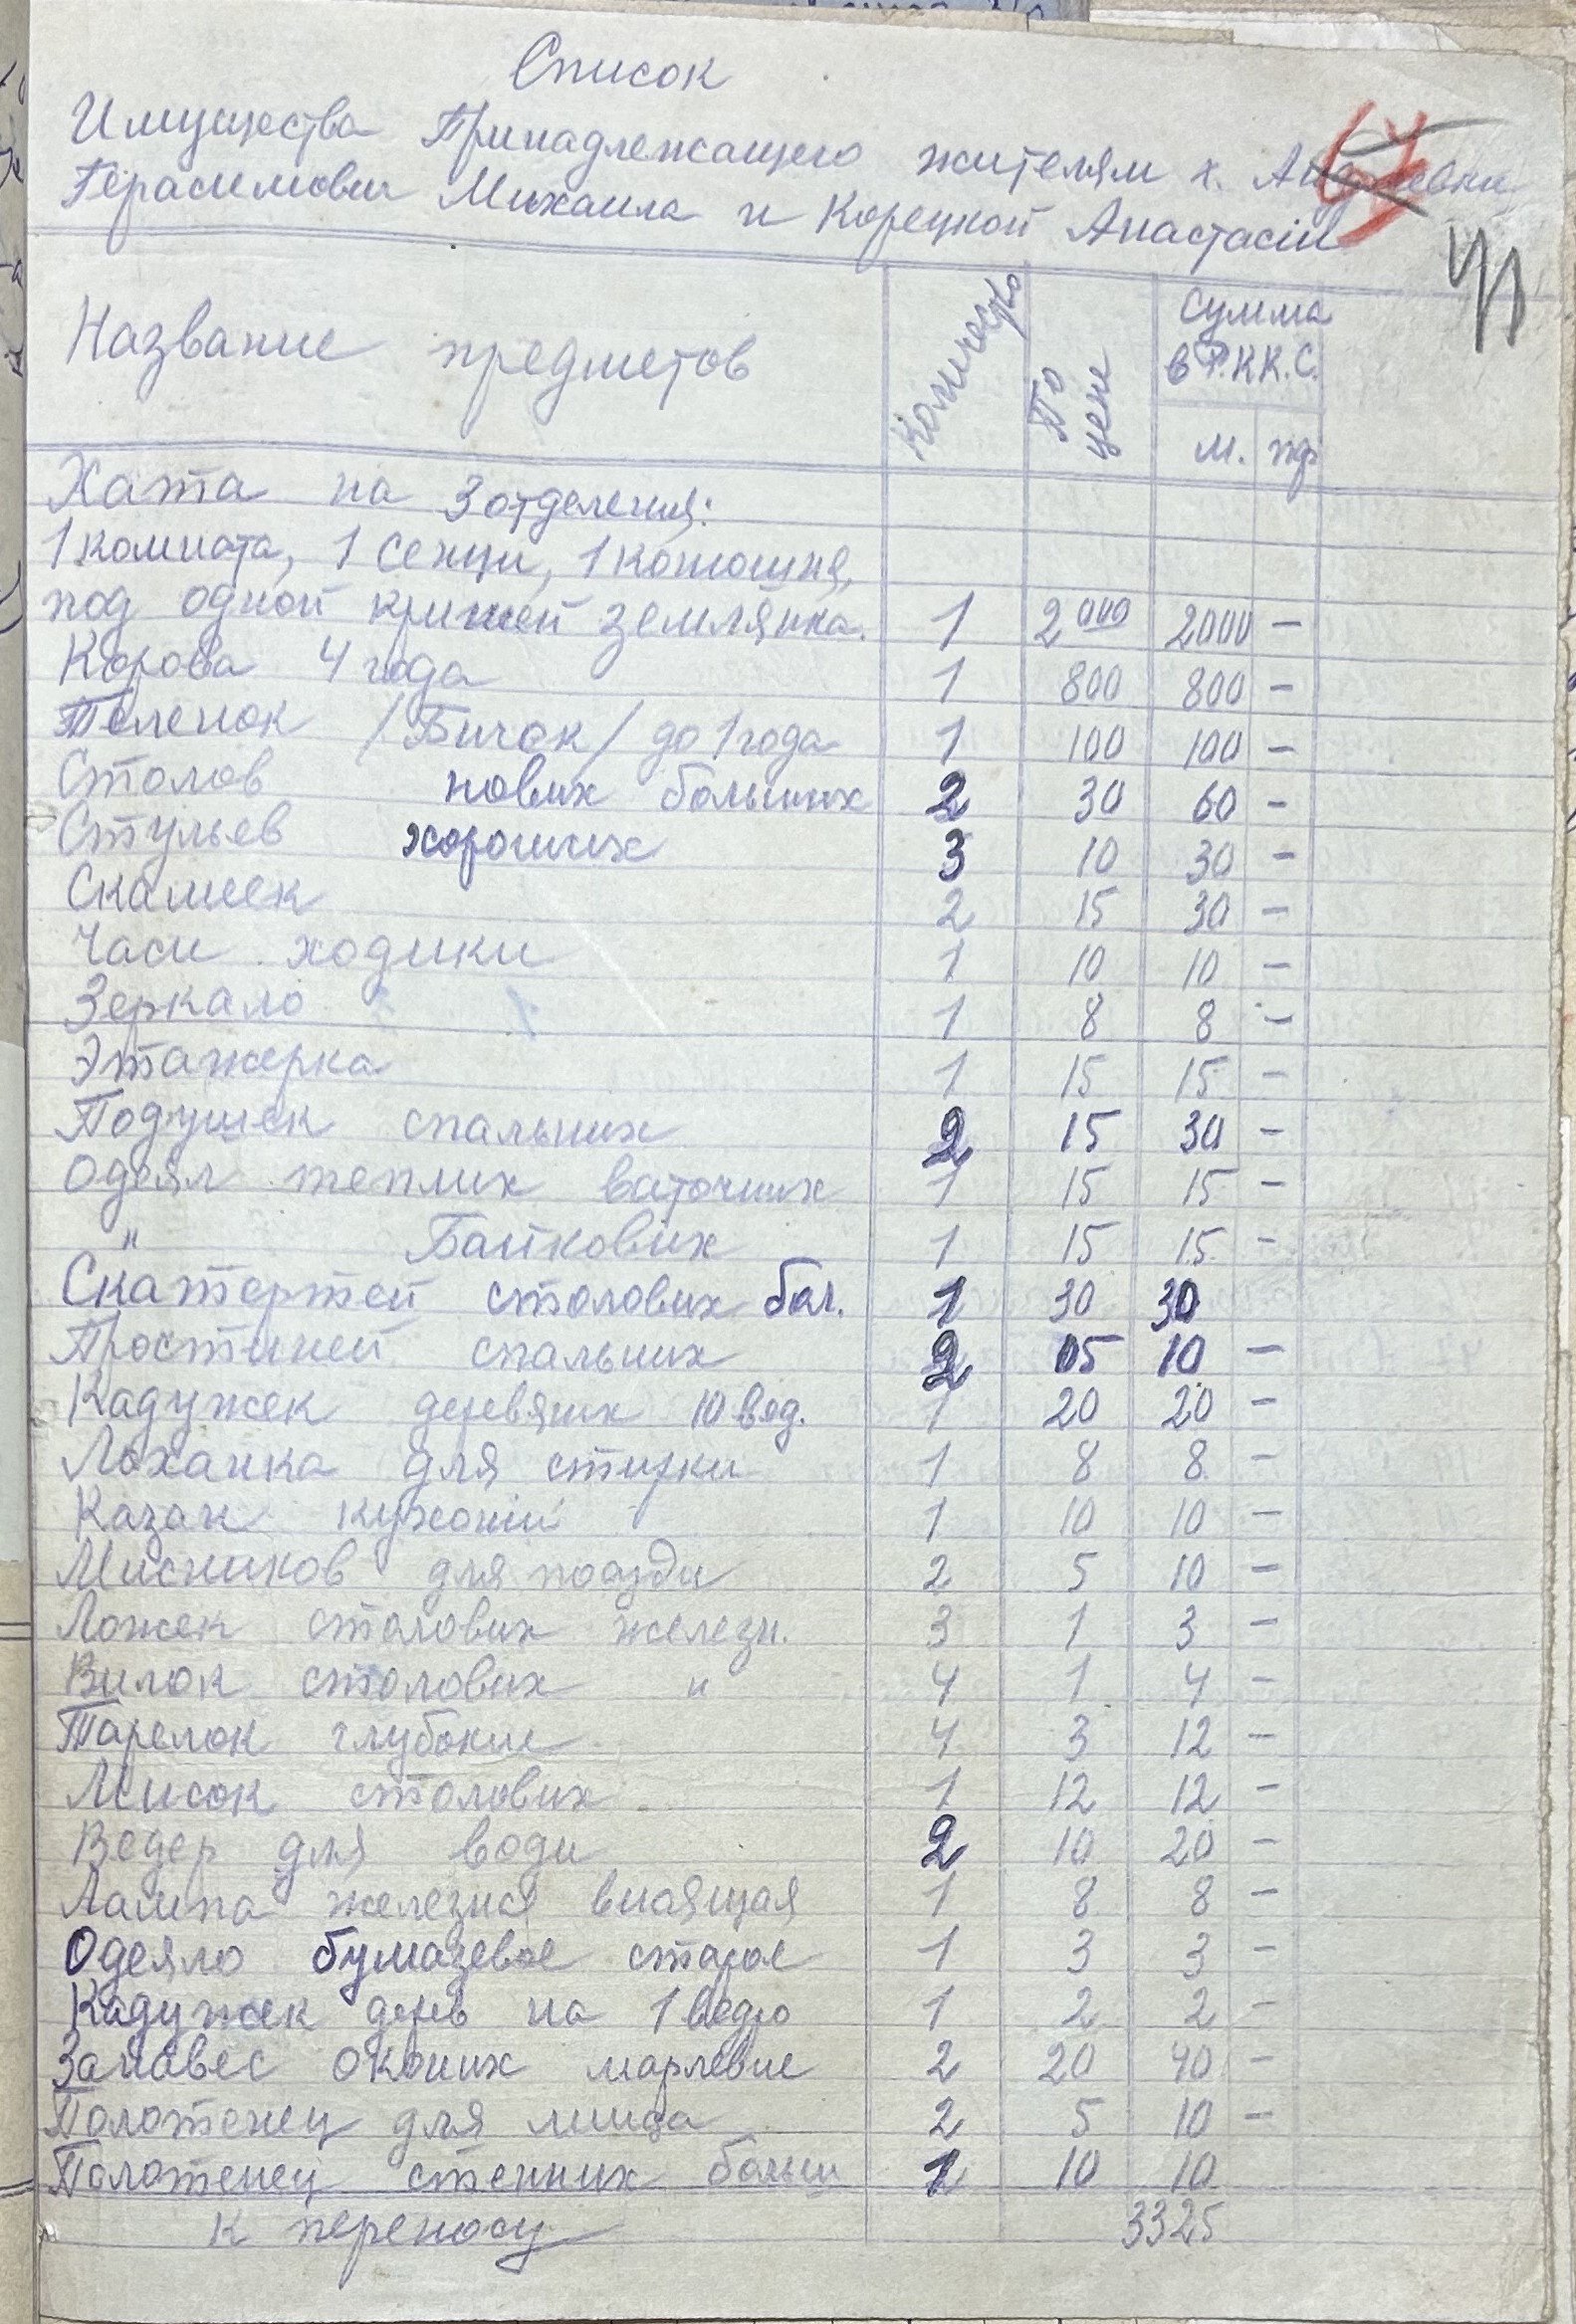 Список
Имущества Принадлежащего жителям х. Андреевки
Герасимович Михаила и Корецкой Анастасіи
41
Название предметов Количество По цене Сумма в Р.К.К.С.
м. пф
Хата на 3 отделения:
1 комната, 1 Сенци, 1 конюшня,
под одной кришей землянка. 1 2000 2000 -
Корова 4 года 1 800 800 -
Теленок /Бичок/ до 1 года 1 100 100 -
Столов нових больших 2 30 60 -
Стульев хороших 3 10 30 -
Скамеек 2 15 30 -
Часи ходики 1 10 10 -
Зеркало 1 8 8 -
Этажерка 1 15 15 -
Подушек спальних 2 15 30 -
Одеял теплих ваточних 1 15 15 -
" Байкових 1 15 15 -
Скатертей столових бол. 1 30 30
Простиней спальних 2 05 10 -
Кадужек деревяних 10 вед. 1 20 20 -
Лоханка для стирки 1 8 8 -
Казан кухоний 1 10 10 -
Мисников для посуди 2 5 10 -
Ложек столових железн. 3 1 3 -
Вилок столових " 4 1 4 -
Тарелок глубокие 4 3 12 -
Мисок столових 1 12 12 -
Ведер для води 2 10 20 -
Лампа железная висящая 1 8 8 -
Одеяло бумазевое старое 1 3 3 -
Кадужек дерев на 1 ведро 1 2 2 -
Занавес оконих марлевие 2 20 40 -
Полотенец для лица 2 5 10 -
Полотенец стенних больш 1 10 10
К переносу 3325